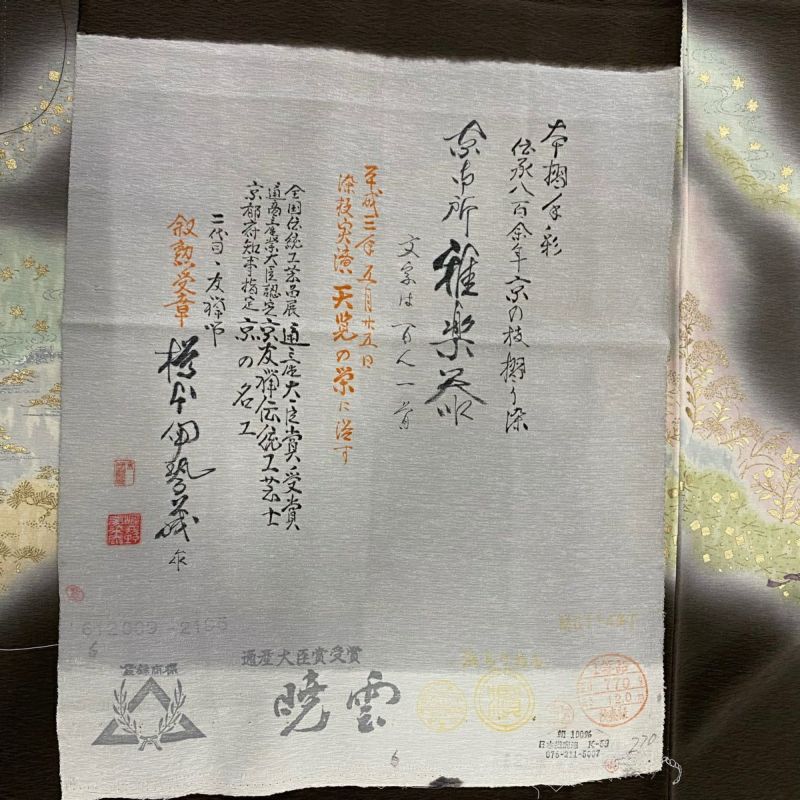 本摺手彩
伝承八百余年京の技摺り染
京御所 雅楽器
文字は百人一首
平成三年五月廿五日
染技実演 天覧の栄に浴す
全国伝統工芸品展 通産大臣賞受賞
通商産業大臣認定 京友禅伝統工芸士
京都府知事指定 京の名工
二代目・友禅師
叙勲受章
612009-2105
6
登録商標
通産大臣賞受賞
暁雲
絹 100%
K-53
075-211-5007
270
6